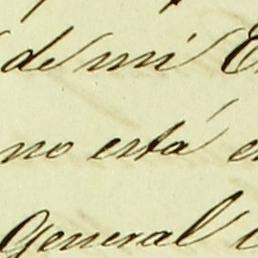 de mi E
no está e
General